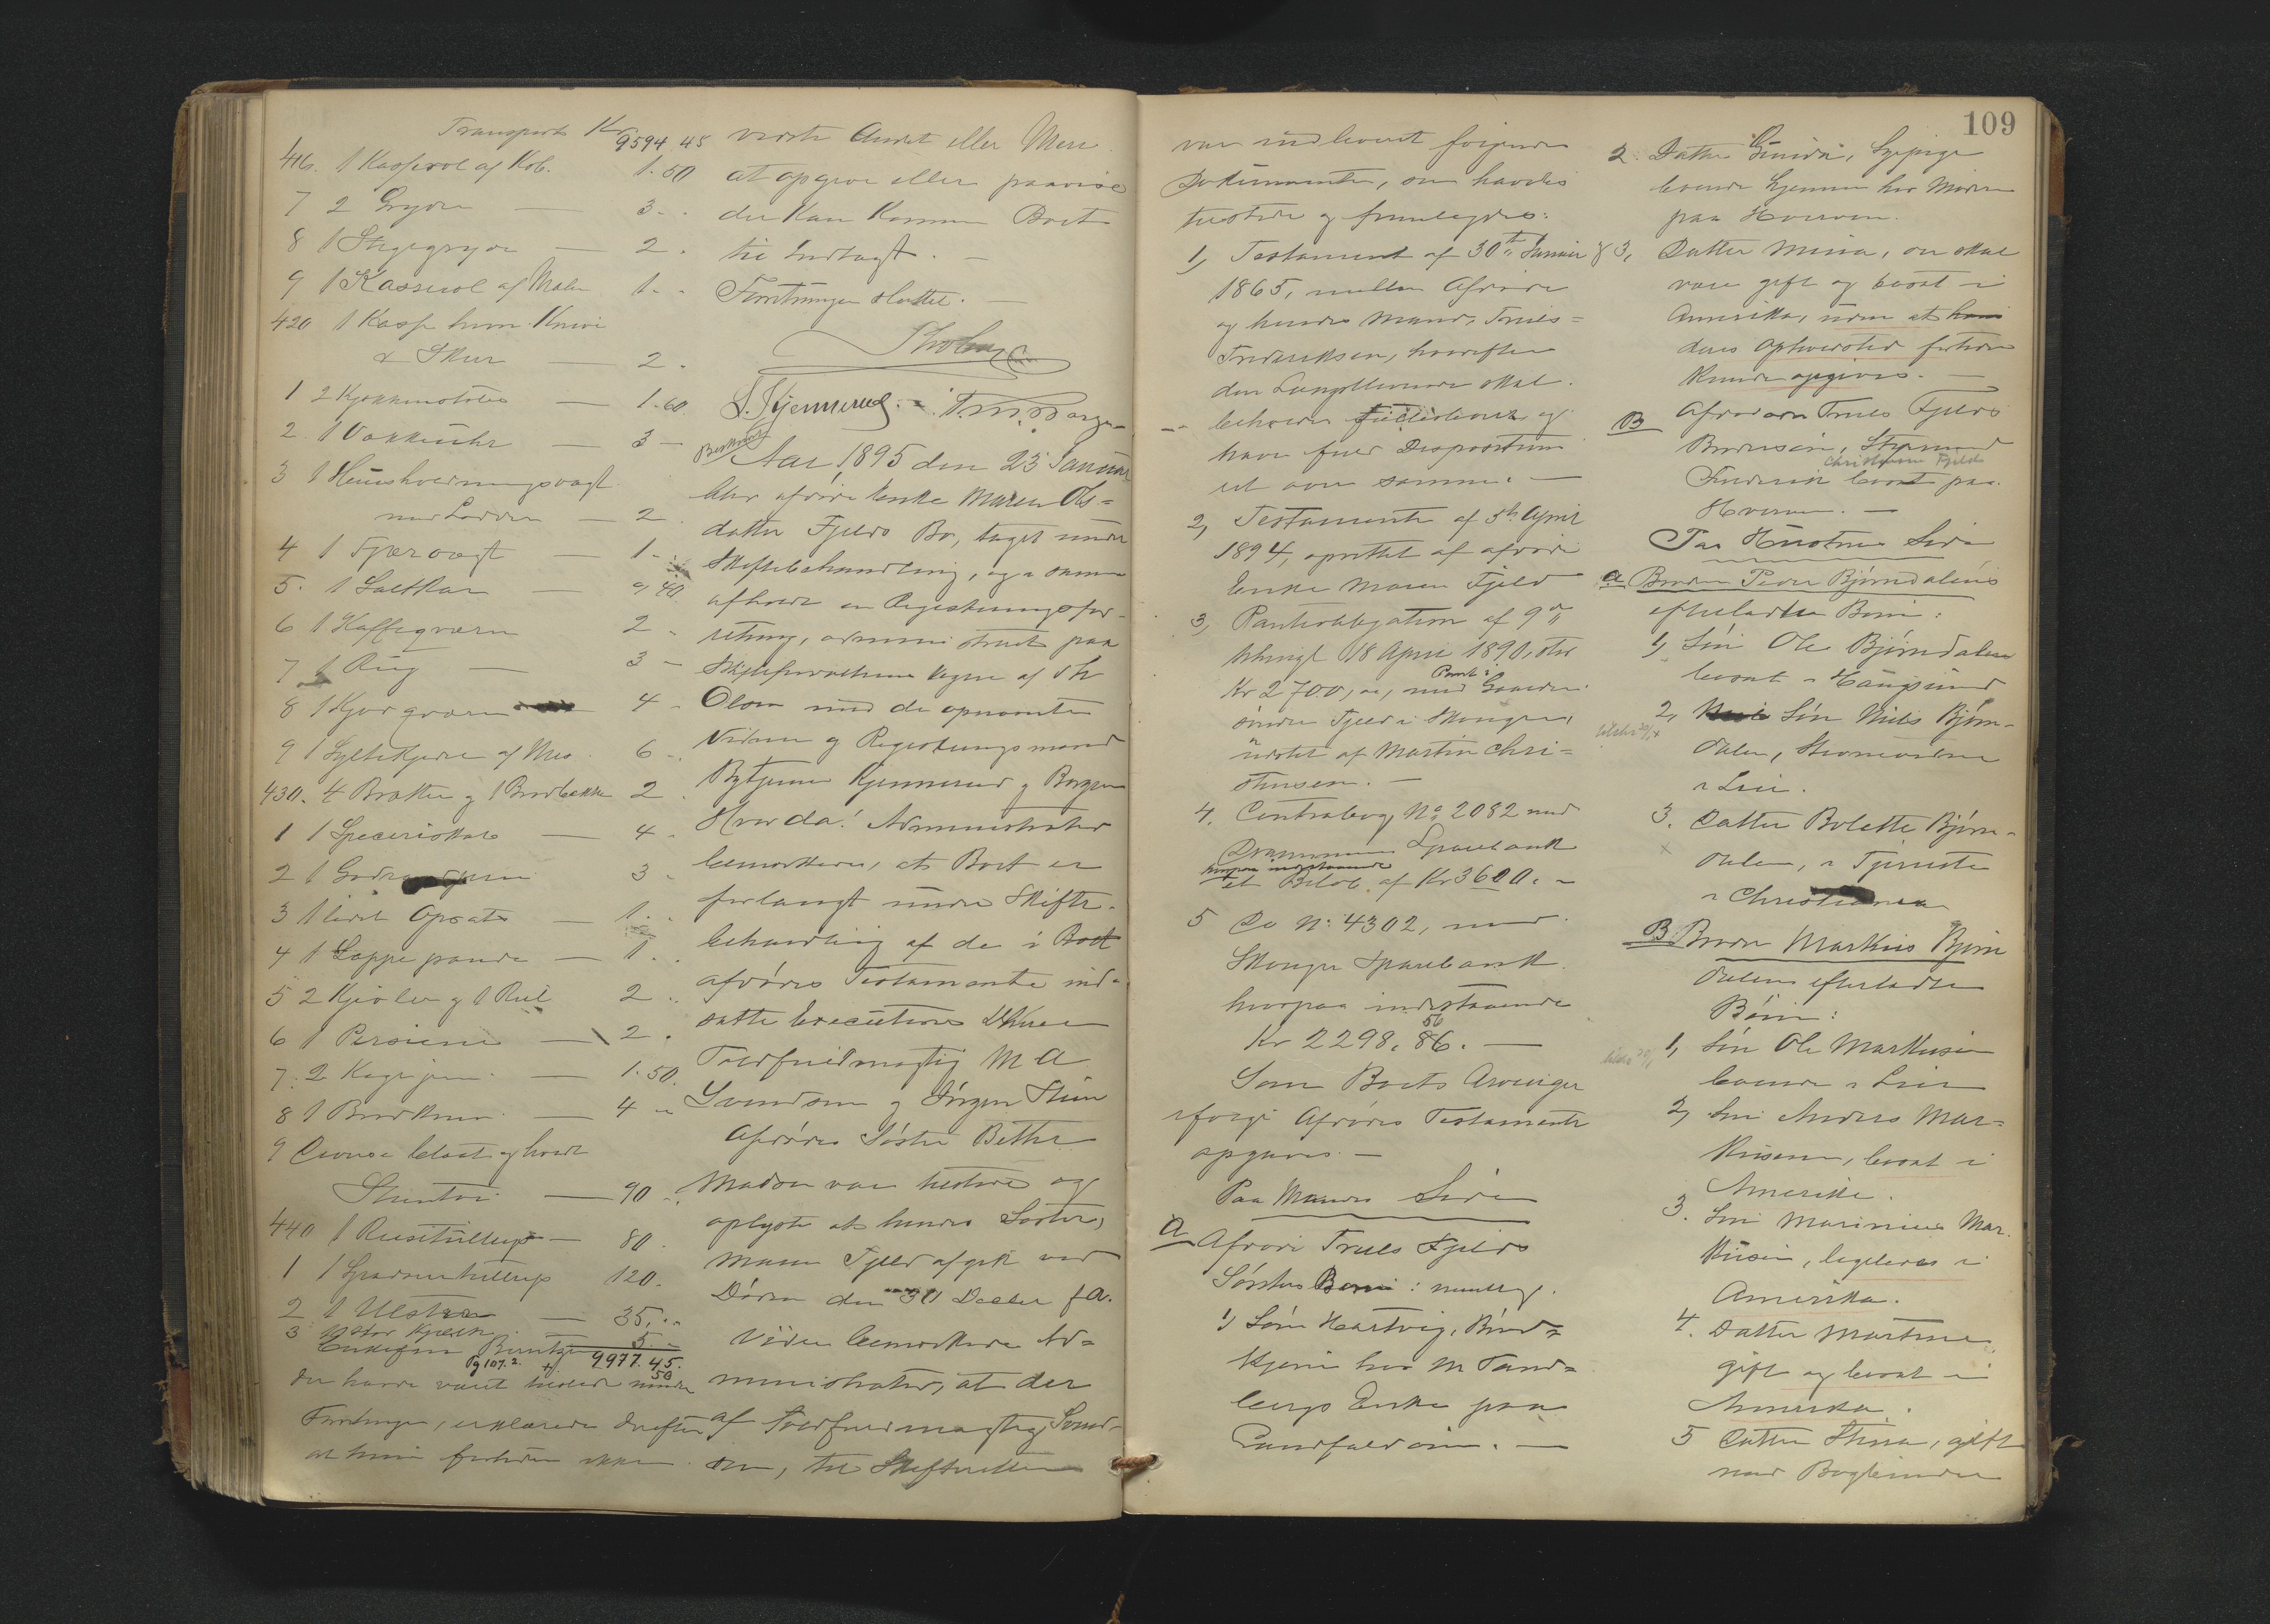 Transport Kr 9594 45
416. 1 Kasserol af Kob. 1.50
7 2 Gryder — 3 -
8 1 Stegegryde — 2 -
9 1 Kasserol af Malm 1 -
420 1 Kasse hvori Knive
& Skeer — 2 -
1 2 Kjøkkenstole — 1.60
2 1 Vækkeuhr — 3 —
3 1 Huusholdningsvægt
med Lodder — 2
4 1 Fjærvægt — 1 -
5. 1 Saltkar — " 40
6 1 Kaffeqværn 2 -
7 1 — 3 -
8 1 4 -
9 1 Syltekjedel af Mes. 6 -
430. 4 Bretter og 1 Brødbakke 2
1 1 Speceriskab — 4 -
2 1 3 -
3 1 Opsats — 1 -
4 1 Lappepande — 1.
5 2 Kjoler og 1 2 -
6 1 — 2.
7. 2 Kagejern — 1.50.
8 1 Brødkniv — 4 -
9 Diverse blaat og hvidt
Stentøi — 90 -
440 1 — 80.
1 1 120.
2 1 Ulster — 35. -
3 1 stor — 5 -
Enkefru Berntzen 9977.45.
Pg 107.2. + 50
der havde været tilstede under
Forretningen, erklærede derefter
at hun forøvrigt ikke
vidste Andet eller Mere
at opgive eller paavise
der kan komme Boet
til Indtægt. —
Forretningen sluttet. —
Th Olsen
S. Kjennerud. T. M. Borgen
Aar 1895 den 23 Januar
blev afdøde Enke Maren Ols=
datter Fjelds Bo, taget under
Skiftebehandling, og i samme
afholdt en Registreringsfor-
retning, administreret paa
Skifteforvalterens Vegne af Th
Olsen med de opnævnte
Vidner og Registreringsmænd
Bytjener Kjennerud og Borgen
Hvorda! Administrator
bemærkede, at Boet er
forlangt under Skifte-
behandling af de i Boet
afdødes Testamente ind-
satte Executorer DHrr
Toldfuldmægtig M A
Svendsen og Jørgen Stein
Afdødes Søster Bethe
Madsen var tilstede og
oplyste at hendes Søster,
Maren Fjeld afgik ved
Døden den 30 Decbr f A.
Videre bemærkede Ad=
ministrator, at der
af Toldfuldmægtig Svend-
sen, til Skifteretten
109
var indleveret følgende
Dokumenter, som havdes
tilstede og fremlagdes:
1, Testament af 30te Januar
1865, mellem Afdøde
og hendes Mand, Truls=
Frederiksen, hvorefter
den Længstlevende skal
beholde Fællesboet og
have fuld Disposition
ret over samme. —
2, Testamente af 5te April
1894, oprettet af afdøde
Enke Maren Fjeld
3, Panteobligation af 9de
thinglst 18 April 1890, stor
Kr 2700,00, med Pant i Gaarden
søndre Fjeld i Skouger,
udstedt af Martin Chri=
stensen. —
4. Contrabog No 2082 med
Drammens Sparebank
hvorpaa indestaaende
et Beløb af Kr 3600. -
5 Do No 4302, med
Skouger Sparebank
hvorpaa indestaaende
56
Kr 2298.86. —
Som Boets Arvinger
ifølge Afdødes Testamente
opgaves —
Paa Mandens Side
A Afdøde Truls Fjelds
Søsters Børn: nemlig.
1, Søn Hartvig, Bund=
kjører hos M Tand=
bergs Enke paa
2. Datter, Sypige
boende hjemme hos Moderen
paa
3, Datter Mina, der skal
være gift og bosat i
Amerika, uden at
deres Opholdssted forhen
kunde opgives. —
B Afdøde Truls Fjelds
Brodersøn, Styrmand
Christian Fjeld
Frederik bosat paa
Paa Hustrues Side
a Broder Peder Bjørndalens
efterladte Børn:
1, Søn Ole Bjørndalen
bosat i Haugsund
2, Søn Niels Bjørn-
dalen,
i Lier.
3. Datter Bolette Bjørn-
dalen, i Tjeneste
i Christiania
B Broder Markus Bjørn
dalens efterladte
Børn:
1, Søn Ole Markusen
boende i Lier
2, Søn Anders Mar=
kusen, bosat i
Amerika.
3. Søn Marinius Mar-
kusen, ligeledes i
Amerika.
4. Datter Martine
gift og bosat i
Amerika.
5 Datter Stina, gift
med Bogbinder